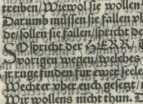 treiben / Wiewol sie wollen
Darumb müssen sie fallen v
de / sollen sie fallen / spricht de
SO spricht der HERR / T
vorigen wegen / welches
jr ruge finden fur ewer seele
Wechter vber euch gesetzt /
Wir wollens nicht thun. D